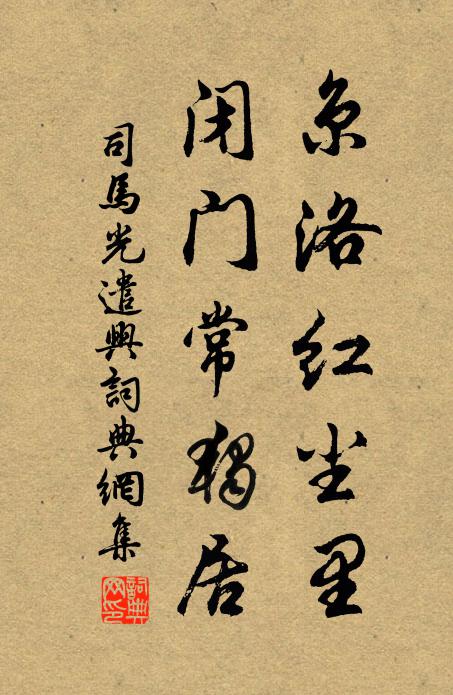 京洛红尘里
闭门常独居
司馬光遣興詞典網集
詞典网印